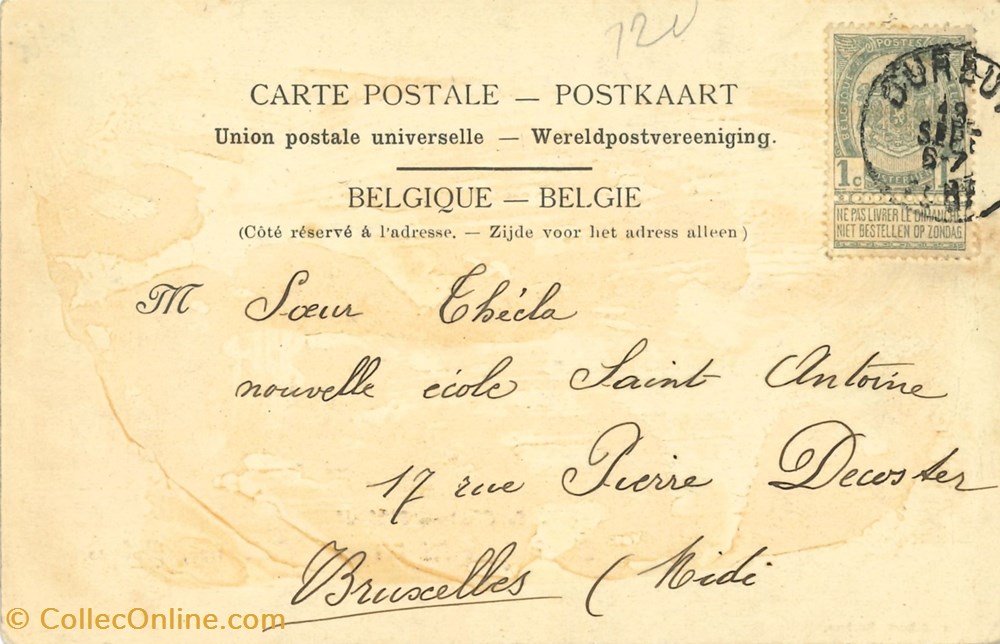 120
CARTE POSTALE — POSTKAART
Union postale universelle — Wereldpostvereeniging.
BELGIQUE — BELGIE
(Côté réservé á l'adresse. — Zijde voor het adress alleen)
POSTES
BELGIQUE
1c 1
NE PAS LIVRER LE DIMANCHE
NIET BESTELLEN OP ZONDAG
13
6-7
M Sœur Thécla
nouvelle école Saint Antoine
17 rue Pierre Decoster
Bruxelles (Midi
© CollecOnline.com